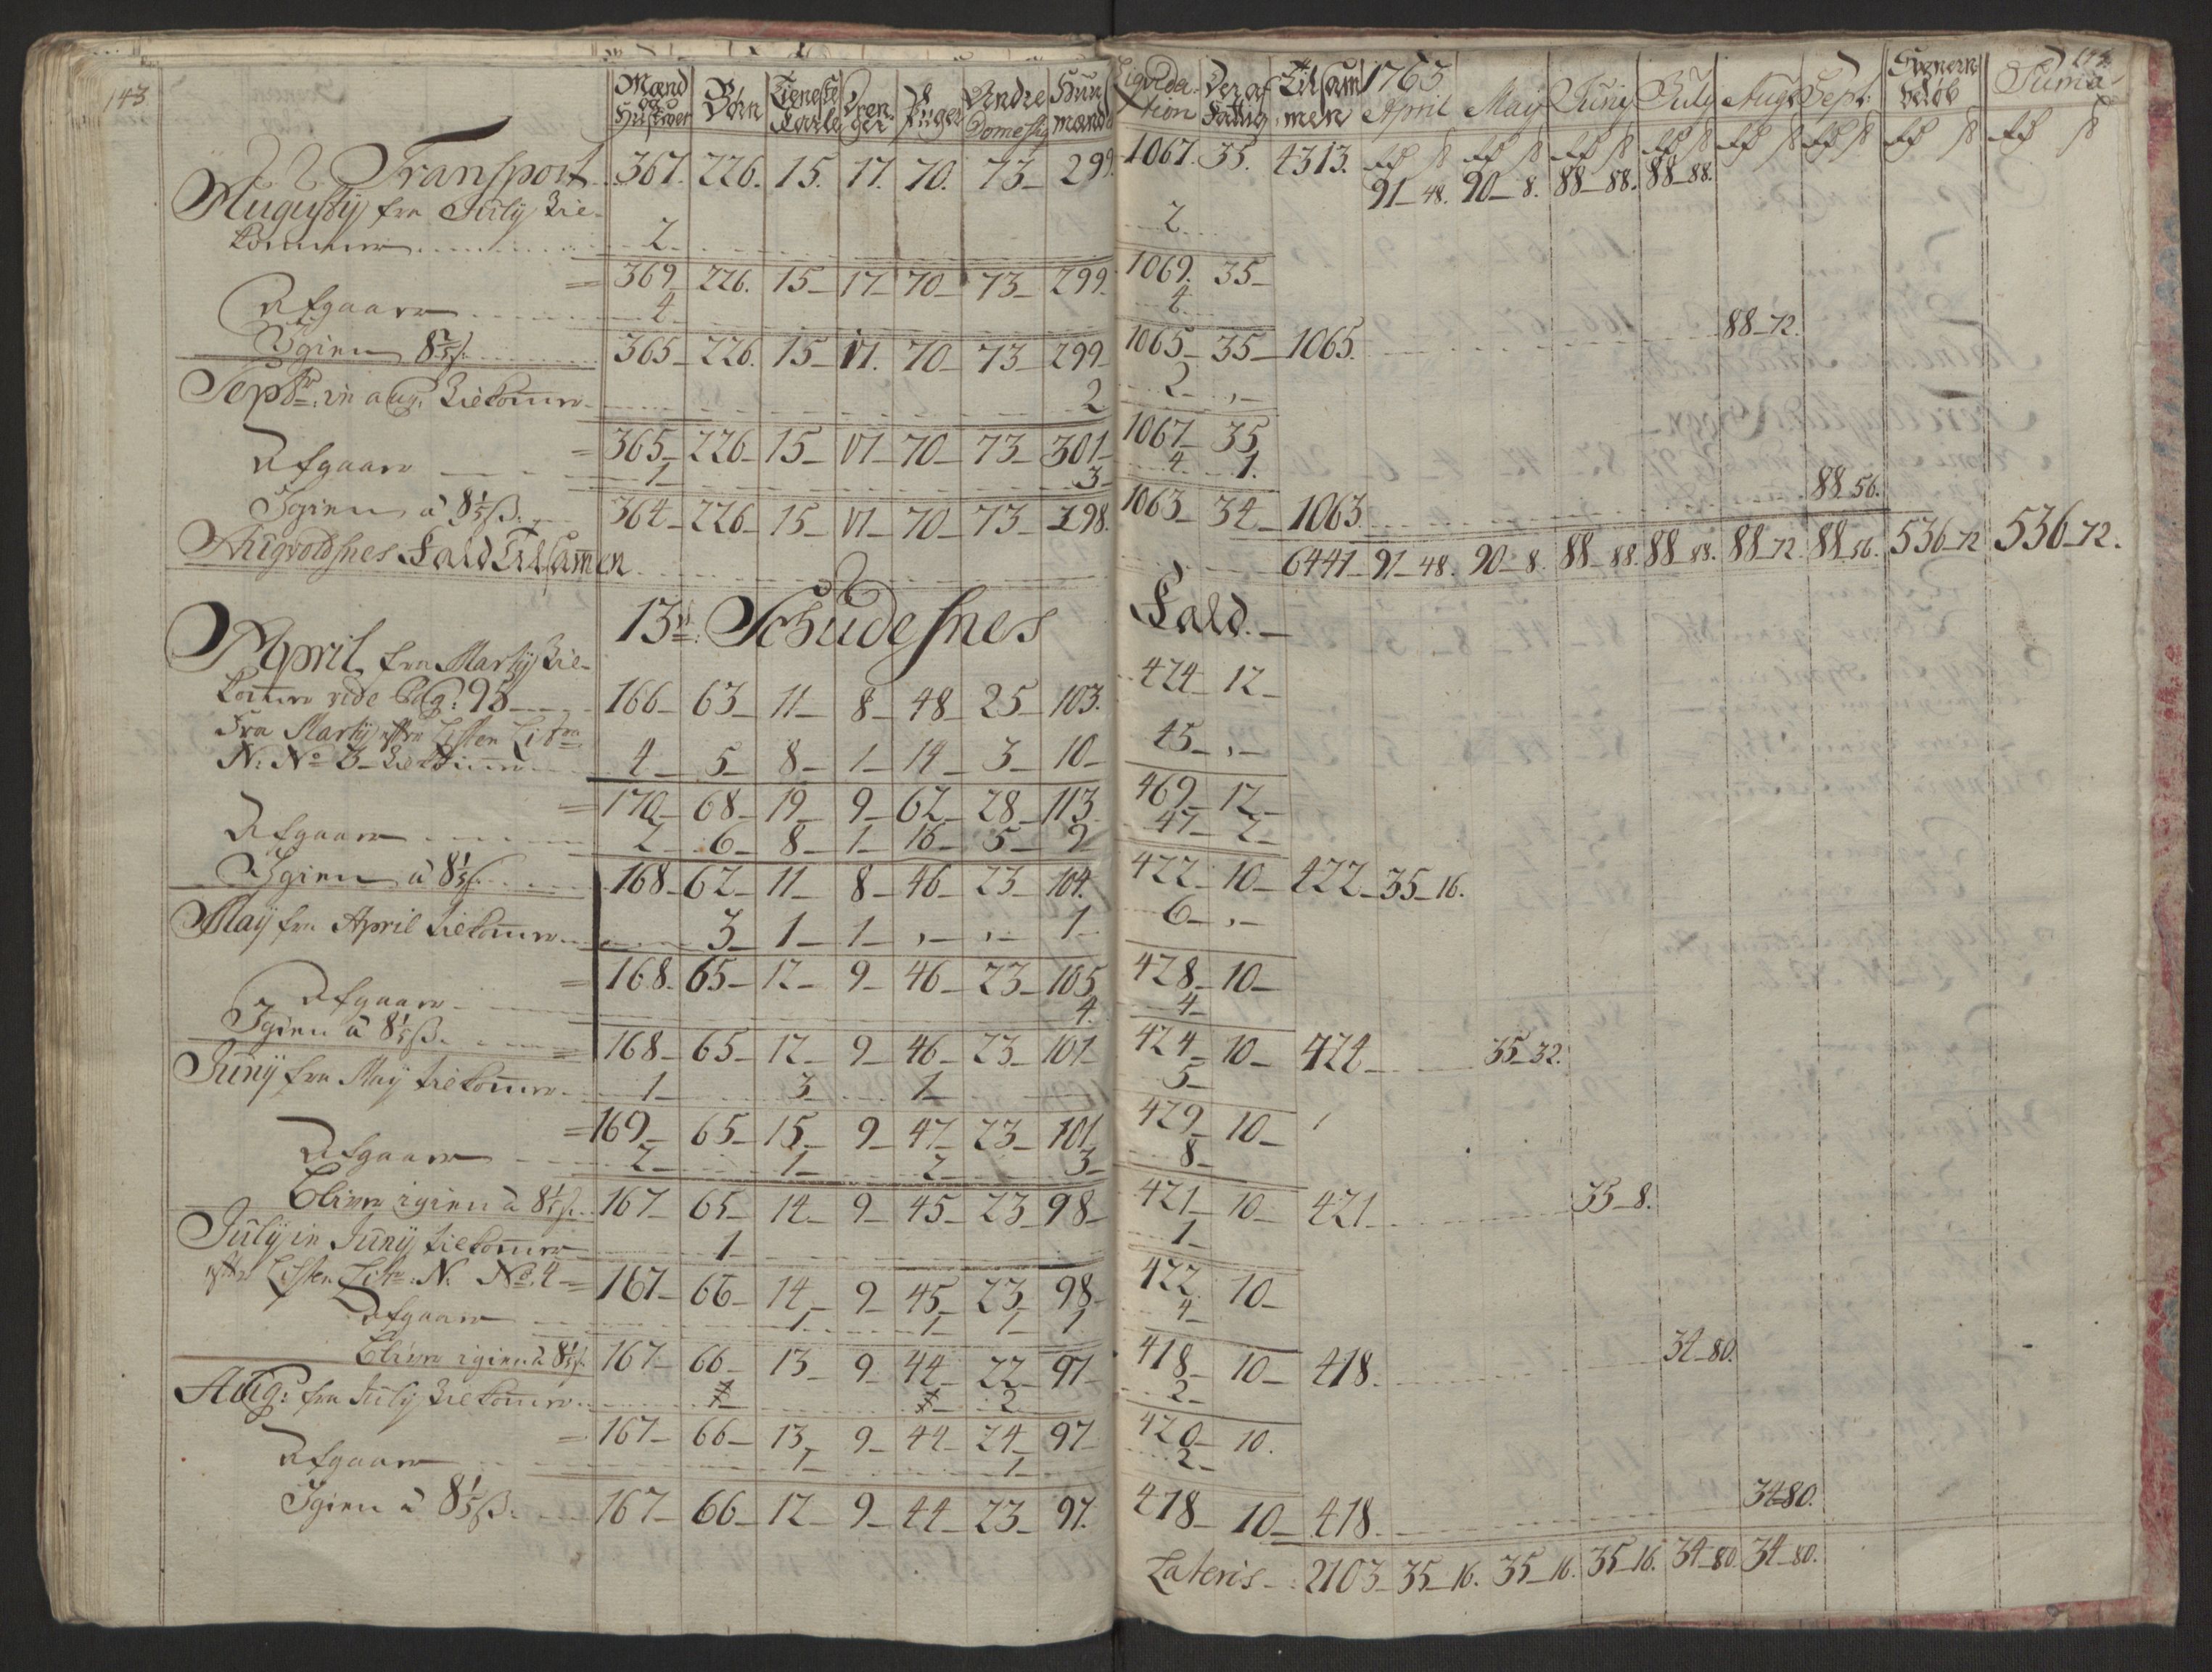 143
144
Mænd og Hustruer | Børn | Tieneste Karle | Dren ger | Piger | Andre Domestiq | Huus mænd | Liqvida- tion | Deraf Fattig | Tilsam men | 1763 April | May | Juny | July | Aug: | Sept: | Svenern beløb | Suma
Transport 367. 226. 15. 17. 70. 73_ 299. 1067. 35. 4313. 91_48. 90_8. 88_88. 88_88.
Augusty fra July Tie-
kommer 2_ 2_
= 369_ 226. 15_ 17_ 70_ 73_ 299. 1069. 35_
Afgaaer 4_ 4_
Igien 365_ 226. 15_ 17. 70_ 73_ 299_ 1065_ 35_ 1065. 88_72.
Septbr: in aug: Tiekomer 2 2_ ,_
= 365_ 226_ 15_ 17_ 70_ 73_ 301_ 1067_ 35
Afgaaer 1_ 3_ 4_ 1.
Igien à 8 1/5 ß. 364_ 226_ 15_ 17_ 70_ 73_ 298. 1063_ 34_ 1063. 88_56.
Augvoldsnes Fald Tilsammen 6441_ 91_48. 90_8. 88_88. 88_88. 88_72. 88_56. 536_72 536_72.
13de Schudesnes Fald._
April fra Marty Tie-
komer vide Pag: 95 166_ 63_ 11_ 8_ 48_ 25_ 103. 424_ 12_
Fra Marty efter Listen Litra
N: No 3_ Tiekomer 4_ 5_ 8_ 1_ 14_ 3_ 10_ 45_ ,_
= 170_ 68_ 19_ 9_ 62_ 28_ 113_ 469_ 12_
Afgaaer 2_ 6_ 8_ 1_ 16_ 5_ 9_ 47_ 2_
Igien à 8 1/5 ß. 168_ 62_ 11_ 8_ 46_ 23_ 104. 422_ 10_ 422_ 35_16.
May fra April tiekomer 3_ 1_ 1_ ,_ ,_ 1_ 6_ ,_
= 168. 65_ 12_ 9_ 46_ 23_ 105. 428_ 10_
Afgaaer 4. 4_
Igien à 8 1/5 ß. = 168_ 65_ 12_ 9_ 46_ 23_ 101_ 424_ 10_ 424_ 35_32.
Juny fra May tiekomer 1_ 3_ 1_ 5_
= 169_ 65_ 15_ 9_ 47_ 23_ 101_ 429_ 10_
Afgaaer 2_ 1_ 2_ 3_ 8_
bliver igien à 8 1/5 ß. 167_ 65_ 14_ 9_ 45_ 23_ 98_ 421_ 10_ 421_ 35_8.
July in Juny tiekomer 1_ 1_
efter Listen Litr: N: No. 4 = 167_ 66_ 14_ 9_ 45_ 23_ 98_ 422_ 10_
Afgaaer 1_ 1_ 1_ 1_ 4_
bliver igien à 8 1/5 ß. 167_ 66_ 13_ 9_ 44_ 22_ 97_ 418_ 10_ 418. 34_80.
Aug: fra July Tiekomer 2_ 2_
= 167_ 66_ 13_ 9_ 44_ 24_ 97_ 420_ 10.
Afgaaer 1_ 1_ 2_
Igien à 8 1/5 ß. 167_ 66_ 12_ 9_ 44_ 23_ 97. 418_ 10_ 418. 34_80.
Lateris_ 2103_ 35_16. 35_16. 35_16. 34_80. 34_80.